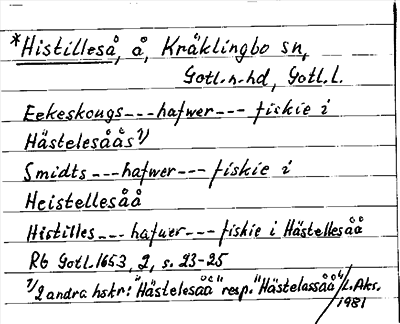 *Histilleså, å, Kräklingbo sn,
Gotl. n. hd, Gotl. l.
Eekeskougs --- hafwer --- fiskie i
Hästelesååsˡ⁾
Smidts --- hafwer --- fiskie i
Heistellesåå
Histilles --- hafwer --- fiskie i Hästellesåå
Rb Gotl. 1653, 2, s. 23-25
¹⁾2 andra hskr: "Hästelesåå" resp. "Hästelassåå"/L. Aks.
1981